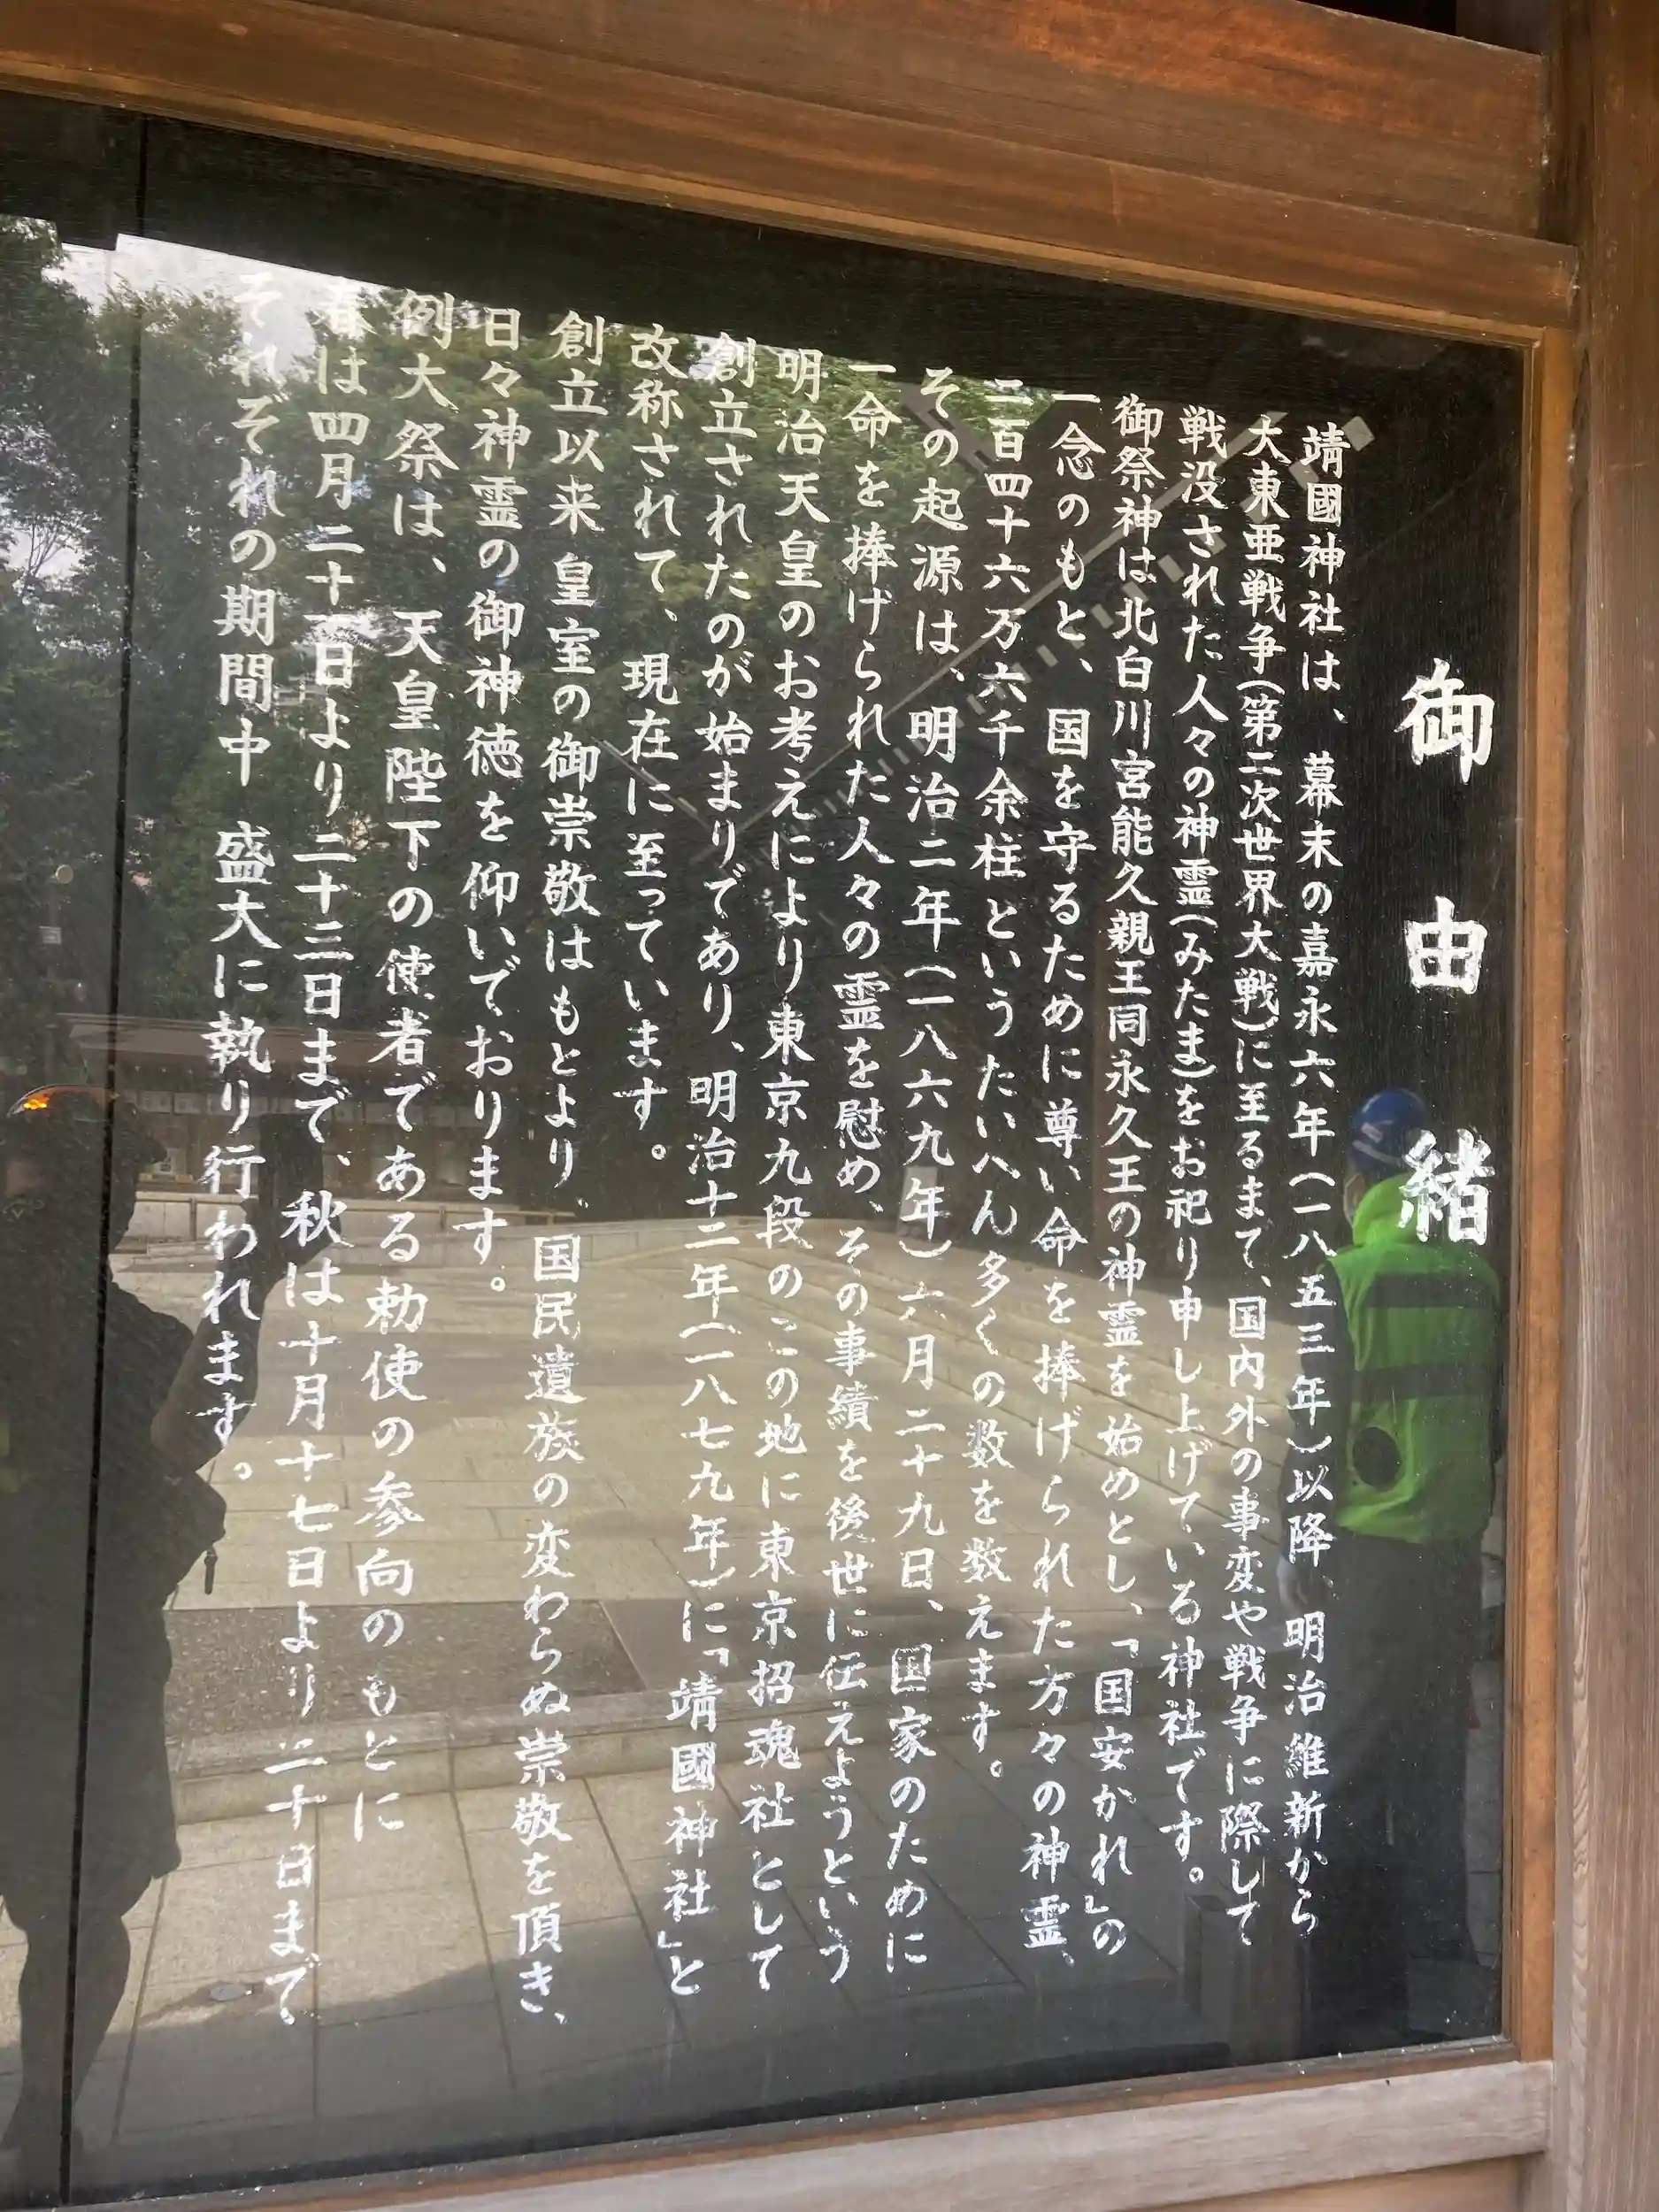 御由緒
靖國神社は、幕末の嘉永六年(一八五三年)以降、明治維新から
大東亜戦争(第二次世界大戦)に至るまて、国内外の事変や戦争に際して
戦没された人々の神霊(みたま)をお祀り申し上げている神社です。
御祭神は北白川宮能久親王同永久王の神霊を始めとし、「国安かれ」の
一念のもと、国を守るために尊い命を捧げられた方々の神霊、
二百四十六万六千余柱というたいへん多くの数を数えます。
その起源は、明治二年(一八六九年)六月二十九日、国家のために
一命を捧げられた人々の霊を慰め、その事績を後世に伝えようという
明治天皇のお考えにより東京九段のこの地に東京招魂社として
創立されたのが始まりであり、明治十二年(一八七九年)に「靖國神社」と
改称されて、現在に至っています。
創立以来皇室の御崇敬はもとより、国民遺族の変わらぬ崇敬を頂き、
日々神霊の御神徳を仰いでおります。
例大祭は、天皇陛下の使者である勅使の参向のもとに
春は四月二十一日より二十三日まで、秋は十月十七日より二十日まで
それぞれの期間中 盛大に執り行われます。